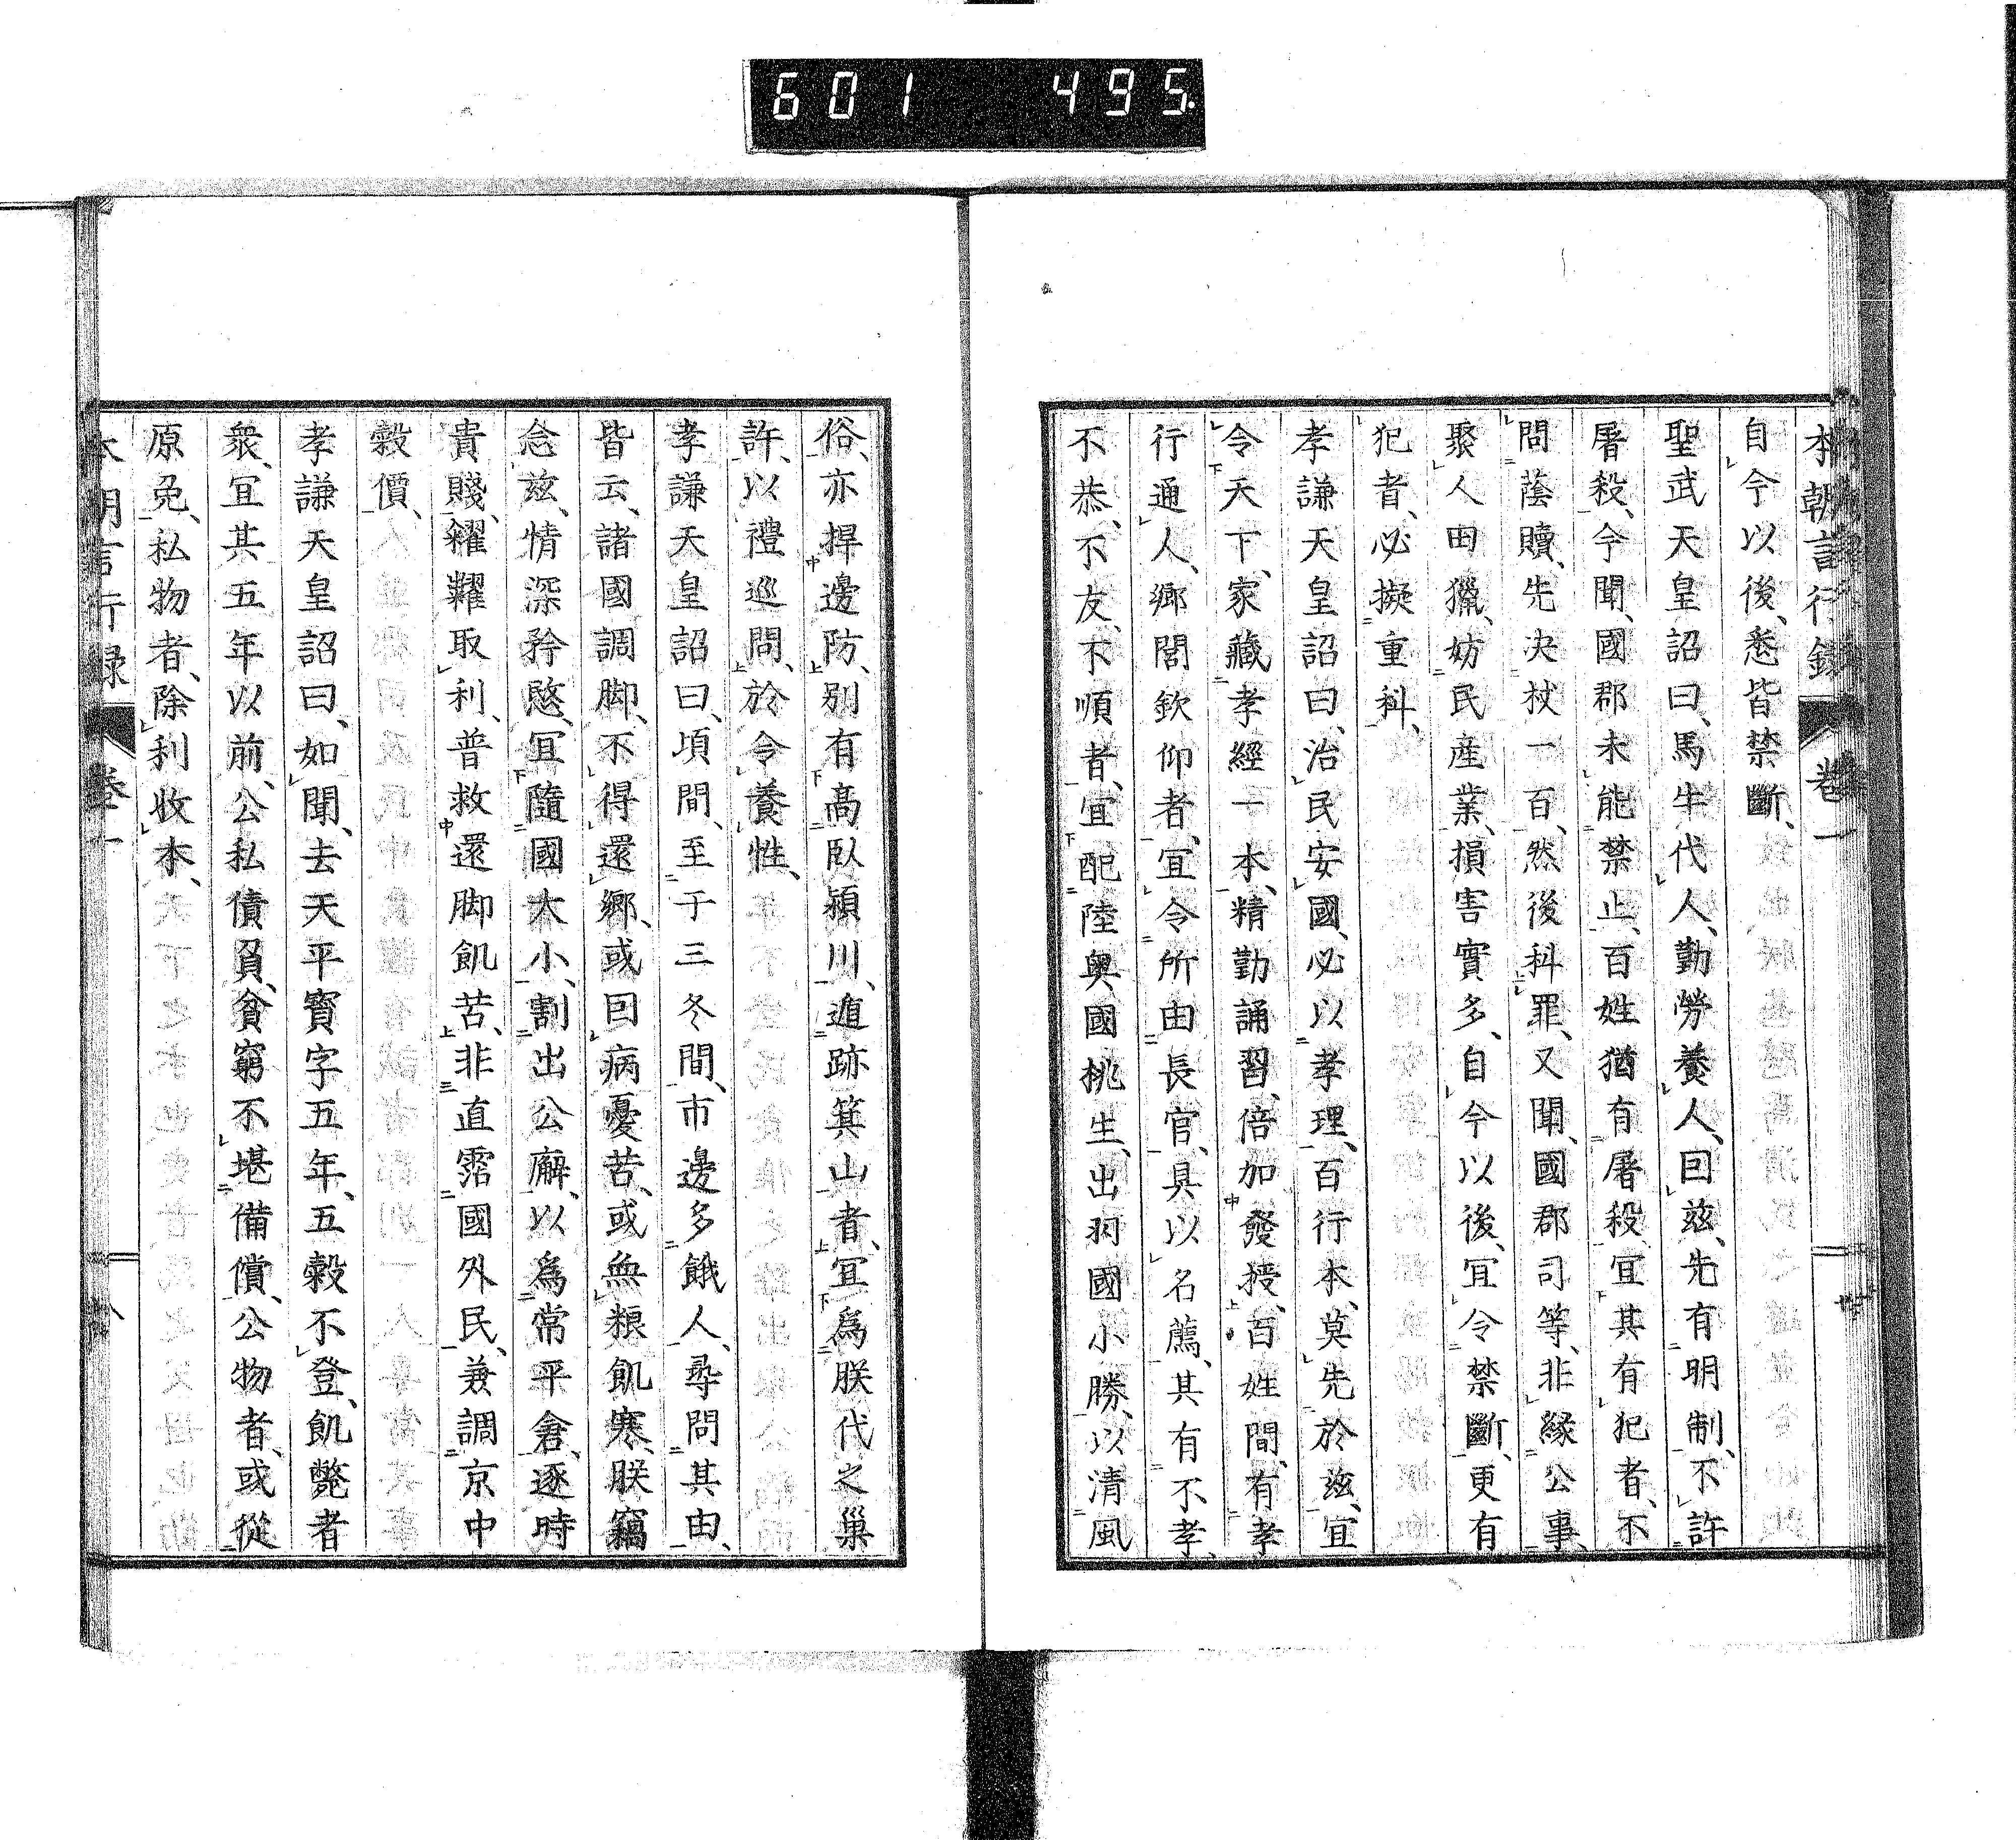 601 495
本朝言行錄 卷一
自今以後、悉皆禁斷、
聖武天皇詔曰、馬牛代人、勤勞養人、因茲、先有明制、不許
屠殺、今聞、國郡未能禁止、百姓猶有屠殺、宜其有犯者、不
問蔭贖、先决杖一百、然後科罪、又聞、國郡司等、非緣公事、
聚人田獵、妨民産業、損害實多、自今以後、宜令禁斷、更有
犯者、必擬重科、
孝謙天皇詔曰、治民安國、必以孝理、百行本、莫先於茲、宜
令天下、家藏孝經一本、精勤誦習、倍加發授、百姓間、有孝
行通人、鄉閭欽仰者、宜令所由長官、具以名薦、其有不孝、
不恭、不友、不順者、宜配陸奧國桃生、出羽國小勝、以清風
俗、亦捍邊防、別有高臥潁川、遁跡箕山者、宜爲朕代之巢
許、以禮巡問、於令養性、
孝謙天皇詔曰、頃間、至于三冬間、市邊多餓人、尋問其由、
皆云、諸國調脚、不得還鄉、或因病憂苦、或無粮飢寒、朕竊
念茲、情深矜愍、宜隨國大小、割出公廨、以爲常平倉、逐時
貴賤、糴糶取利、普救還脚飢苦、非直霑國外民、兼調京中
穀價、
孝謙天皇詔曰、如聞、去天平寶字五年、五穀不登、飢斃者
衆、宜其五年以前、公私債負、貧窮不堪備償、公物者、或從
原免、私物者、除利收本、
本朝言行錄 卷一 八